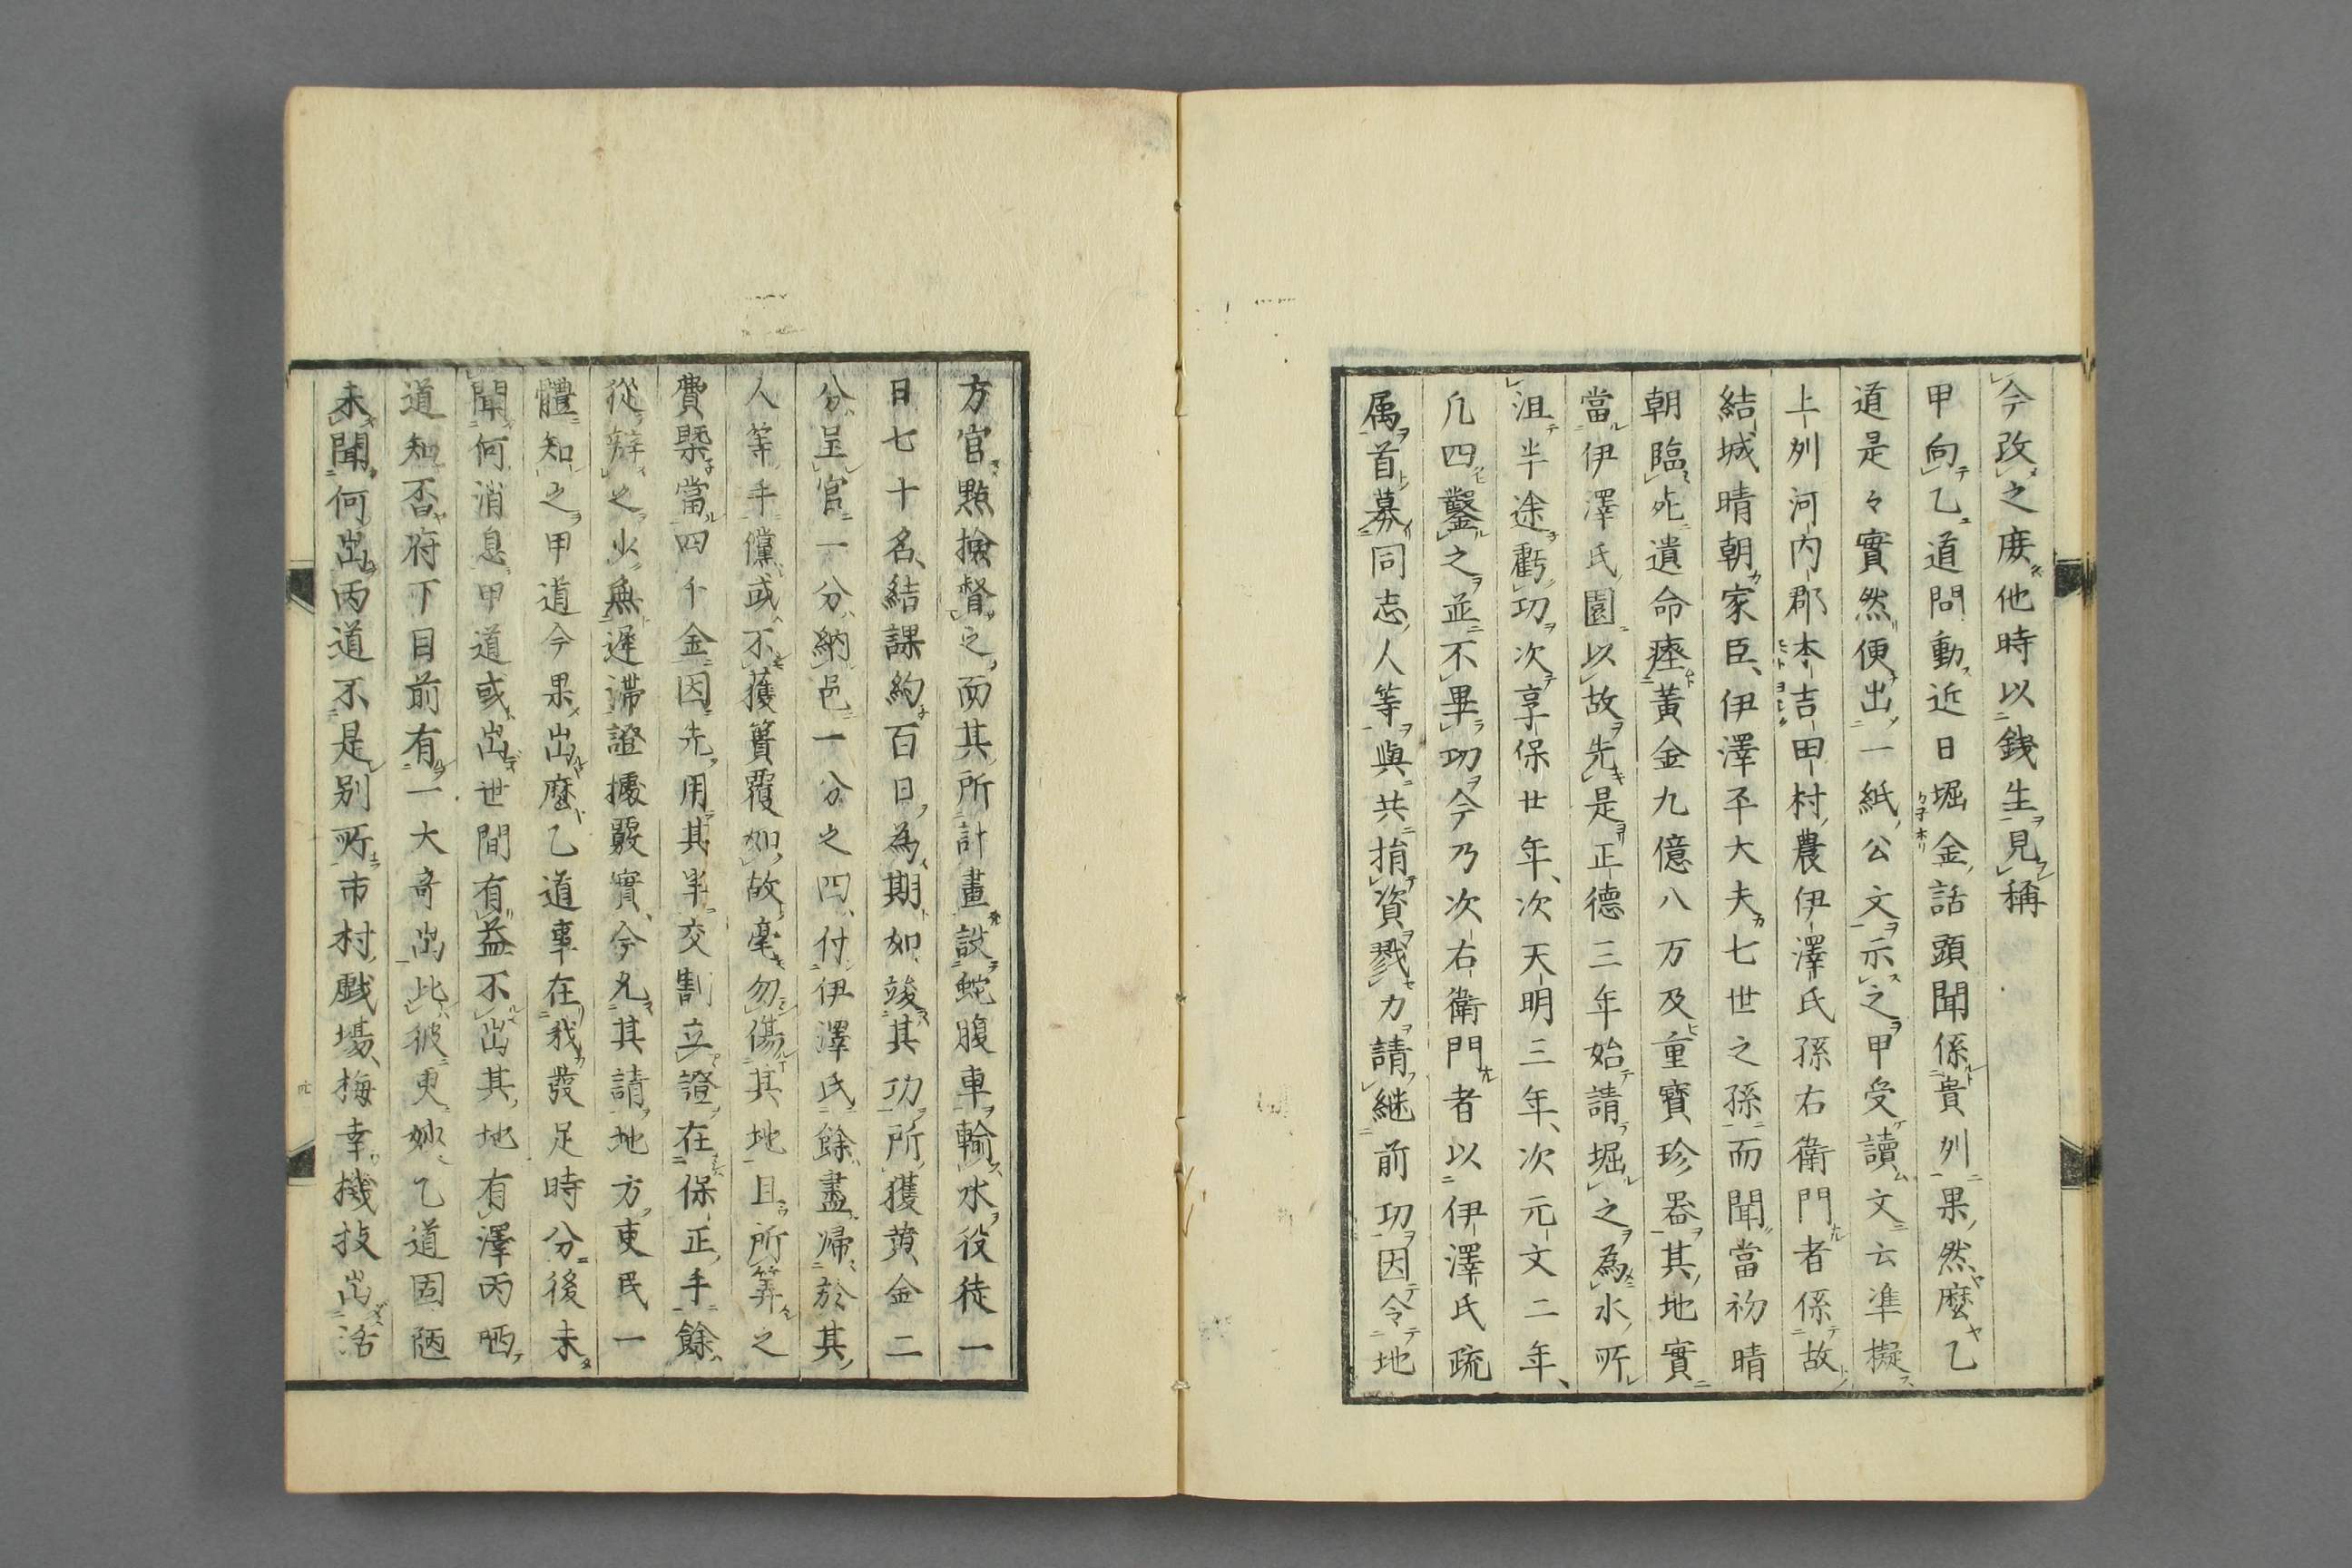 今改之庻他時以錢生見稱
甲向乙道問動近日堀金話頭聞係貴列果然麼乙
道是々實然便出一紙公文示之甲受讀文云準擬
上列河内郡本吉田村農伊澤氏孫右衞門者係故
結城晴朝家臣伊澤平大夫七世之孫而聞當初晴
朝臨死遺命瘞黃金九億八万及重寶珍器其地實
當伊澤氏園以故先是正德三年始請堀之為水所
沮半途虧功次享保廿年次天明三年次元文二年
凡四鑿之並不畢功今乃次右衞門者以伊澤氏疏
属首募同志人等與共捐資戮力請継前功因令地
方官點撿督之而其所計畫設蛇腹車輸水役徒一
日七十名結課約百日為期如竣其功所獲黄金二
分呈官一分納邑一分之四付伊澤氏餘盡歸於其
人等手儻或不獲簣覆如故毫勿傷其地且所筭之
費槩當四千金因先用其半交割立證在保正手餘
從辦之火無遲滯證據覈實今允其請地方吏民一
體知之甲道今果出麼乙道事在我發足時分後未
聞何消息甲道或出世間有益不出其地有澤丙哂
道知否府下目前有一大奇出比彼更妙乙道固陋
未聞何出丙道不是别所市村戲場梅幸機技出活